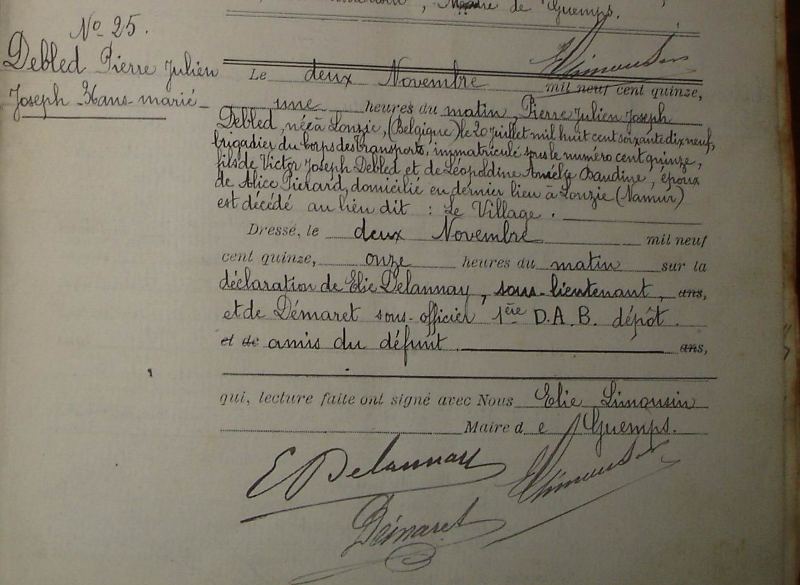 Maire de Guemps.
Nº 25.
Debled Pierre Julien
Joseph Hans-marié-
Le deux Novembre mil neuf cent quinze,
une heures du matin, Pierre Julien Joseph
Debled, né à Lonzie, (Belgique) le 20 juillet mil huit cent soixante dix neuf,
brigadier du corps des transports, immatriculé sous le numéro cent quinze,
fils de Victor Joseph Debled et de Léopoldine Amélie Baudine, époux
de Alice Piérard, domicilié en dernier lieu à Lonzie (Namur)
est décédé au lieu dit : Le Village.
Dressé, le deux Novembre mil neuf
cent quinze, onze heures du matin sur la
déclaration de Elie Delannay, sous-lieutenant, ans,
et de Démaret sous-officier 1ère D.A.B. dépôt.
et de amis du défunt ans,
qui, lecture faite ont signé avec Nous Elie Limousin
Maire de Guemps.
E Delannay
Limousin
Démaret